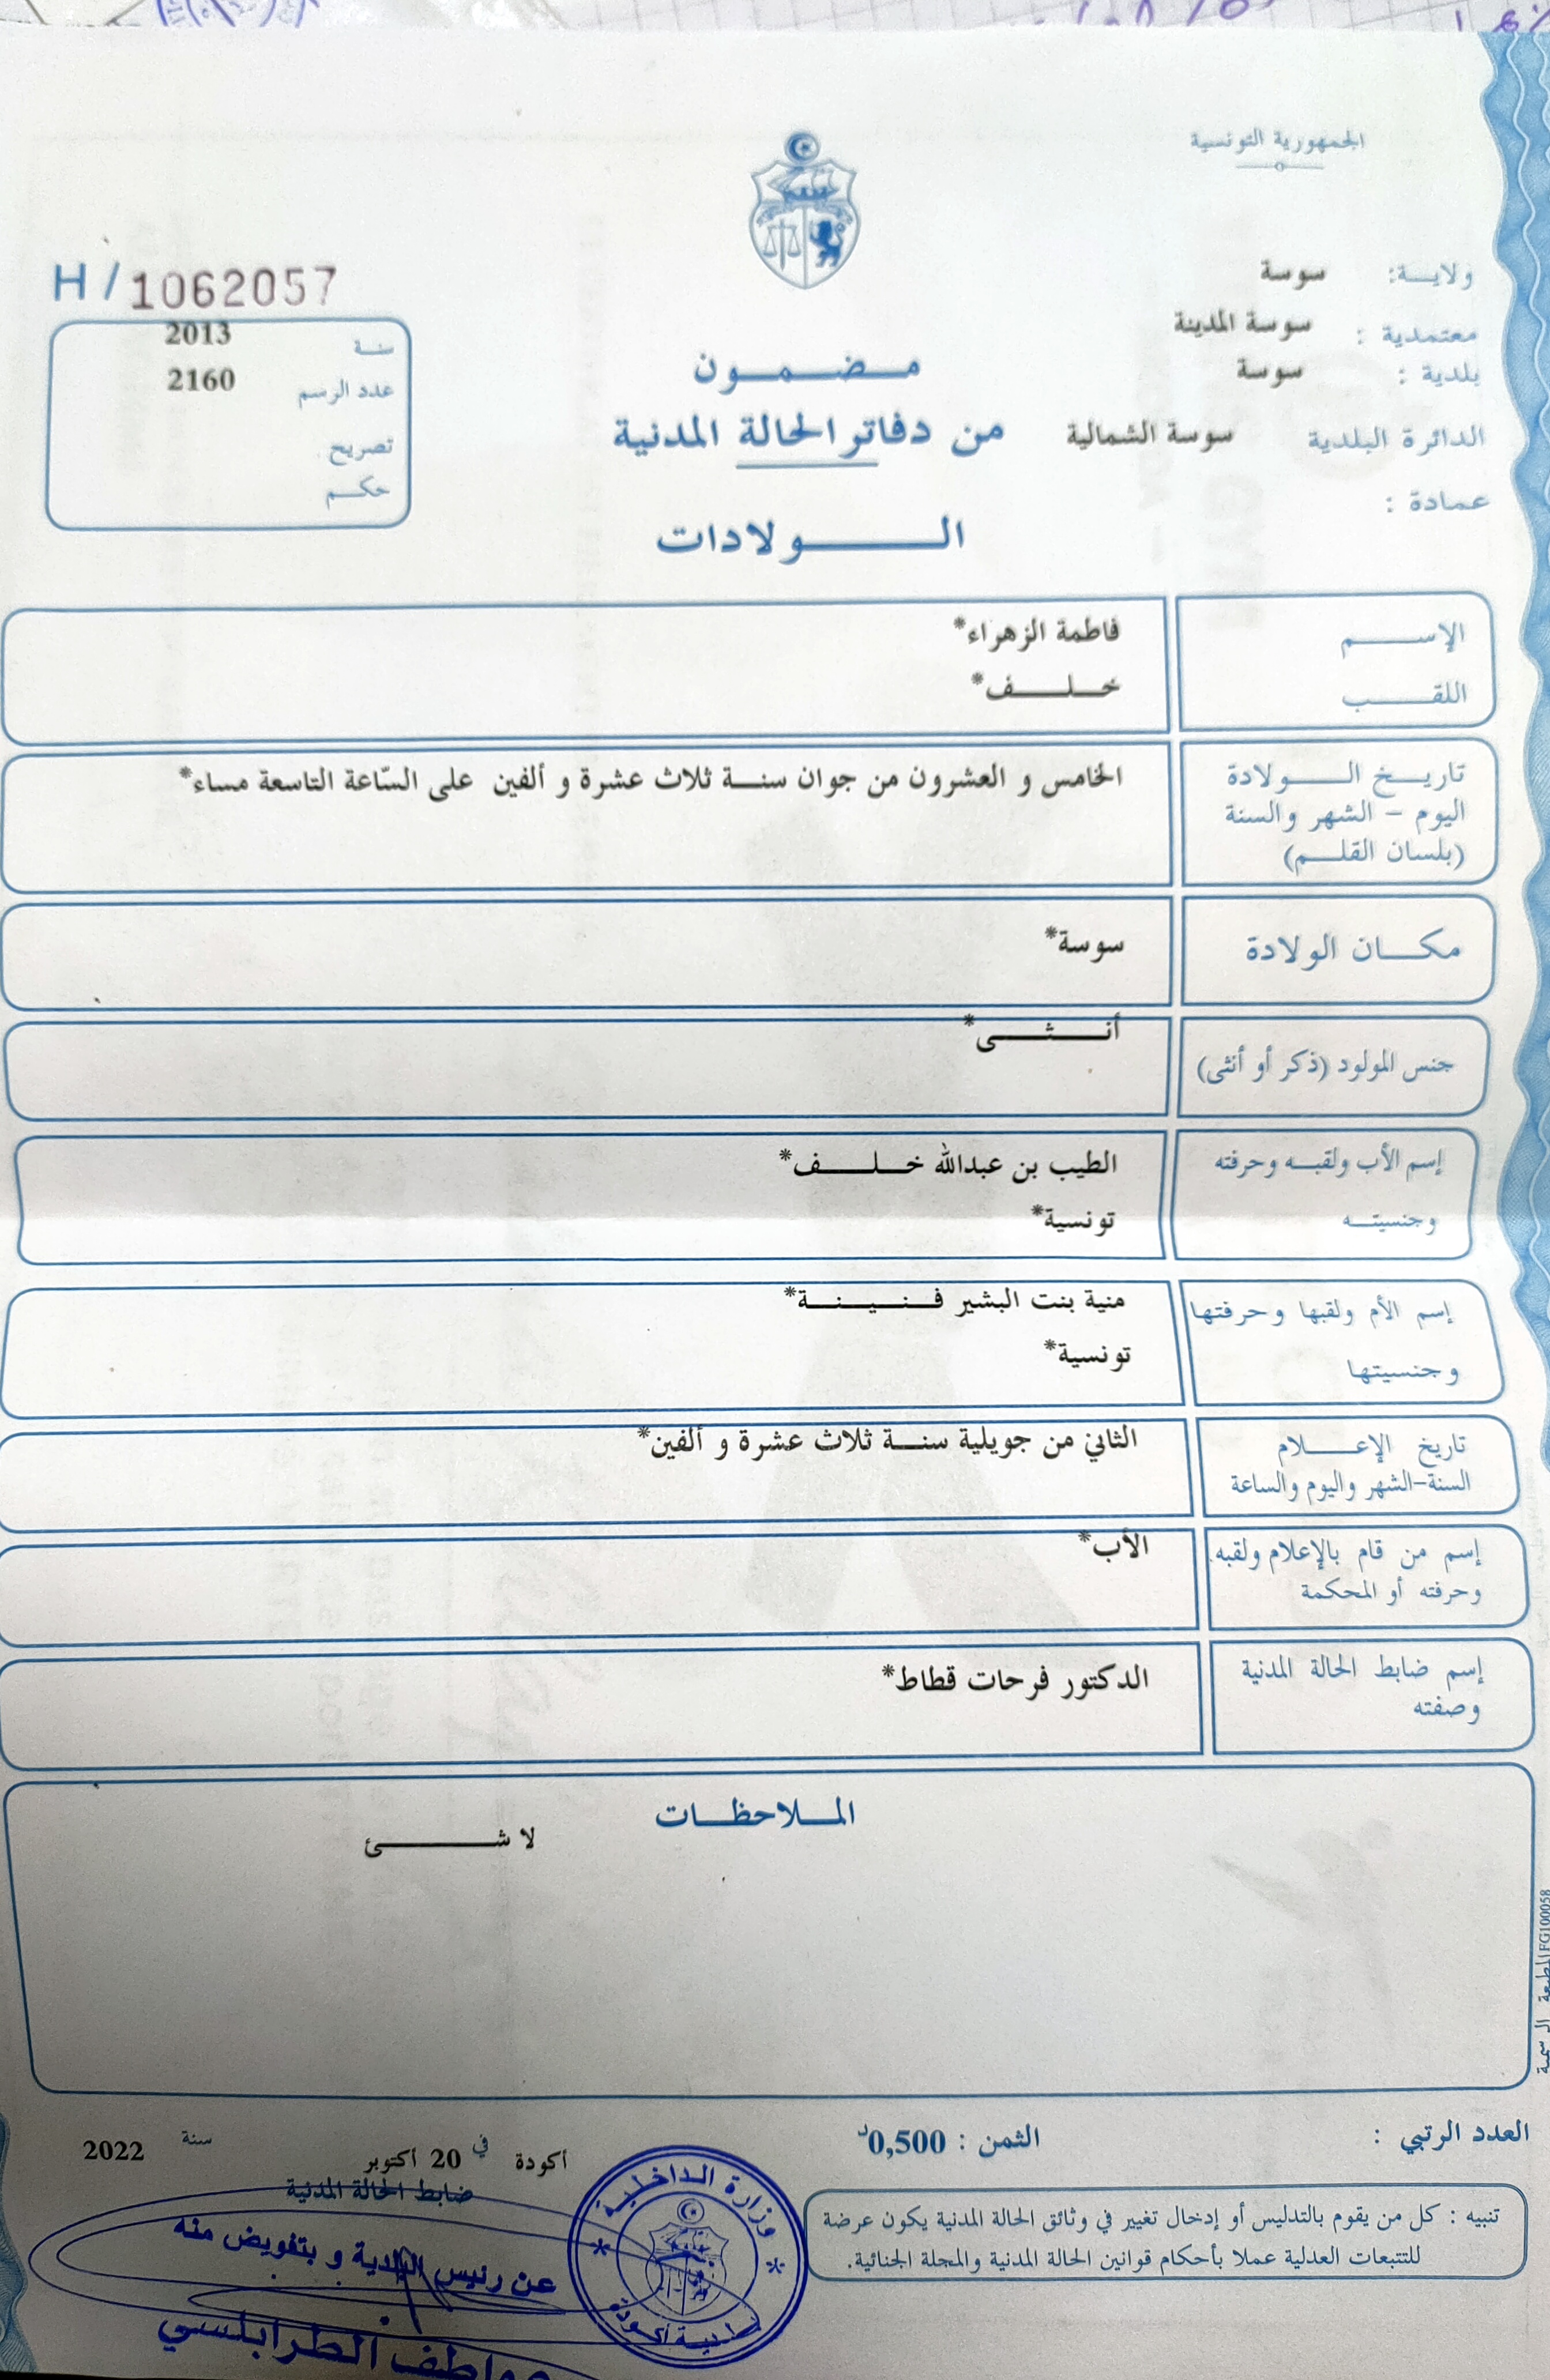 الجمهورية التونسية
ولايـــة: سوسة
معتمدية : سوسة المدينة
بلدية : سوسة
الدائرة البلدية سوسة الشمالية
عمادة :
H / 1062057
سنـة 2013
عدد الرسم 2160
تصريح
حكـــم
مـــضـــمـــــون
من دفاتر الحالة المدنية
الـــــــولادات
الإســـــــم فاطمة الزهراء*
اللقـــــــب خـــلـــــف*
تاريـــخ الـــــولادة الخامس و العشرون من جوان سنــة ثلاث عشرة و ألفين على السّاعة التاسعة مساء*
اليوم – الشهر والسنة
(بلسان القلـــم)
مكـــان الولادة سوسة*
جنس المولود (ذكر أو أنثى) أنـــــثـــــى*
إسم الأب ولقبـــه وحرفته الطيب بن عبدالله خـــلـــــف*
وجنسيتـــه تونسية*
إسم الأم ولقبها وحرفتها منية بنت البشير فــنــيــنــة*
وجنسيتها تونسية*
تاريخ الإعـــــلام الثاني من جويلية سنــة ثلاث عشرة و ألفين*
السنة-الشهر واليوم والساعة
إسم من قام بالإعلام ولقبه الأب*
وحرفته أو المحكمة
إسم ضابط الحالة المدنية الدكتور فرحات قطاط*
وصفته
الملاحظــات
لا شـــــــئ
المطبعة الرسمية FG100058
العدد الرتبي :
الثمن : 0,500د
أكودة في 20 أكتوبر سنة 2022
ضابط الحالة المدنية
تنبيه : كل من يقوم بالتدليس أو إدخال تغيير في وثائق الحالة المدنية يكون عرضة
للتتبعات العدلية عملا بأحكام قوانين الحالة المدنية والمجلة الجنائية.
وزارة الداخلية
بلدية أكودة
عن رئيس البلدية و بتفويض منه
عواطف الطرابلسي